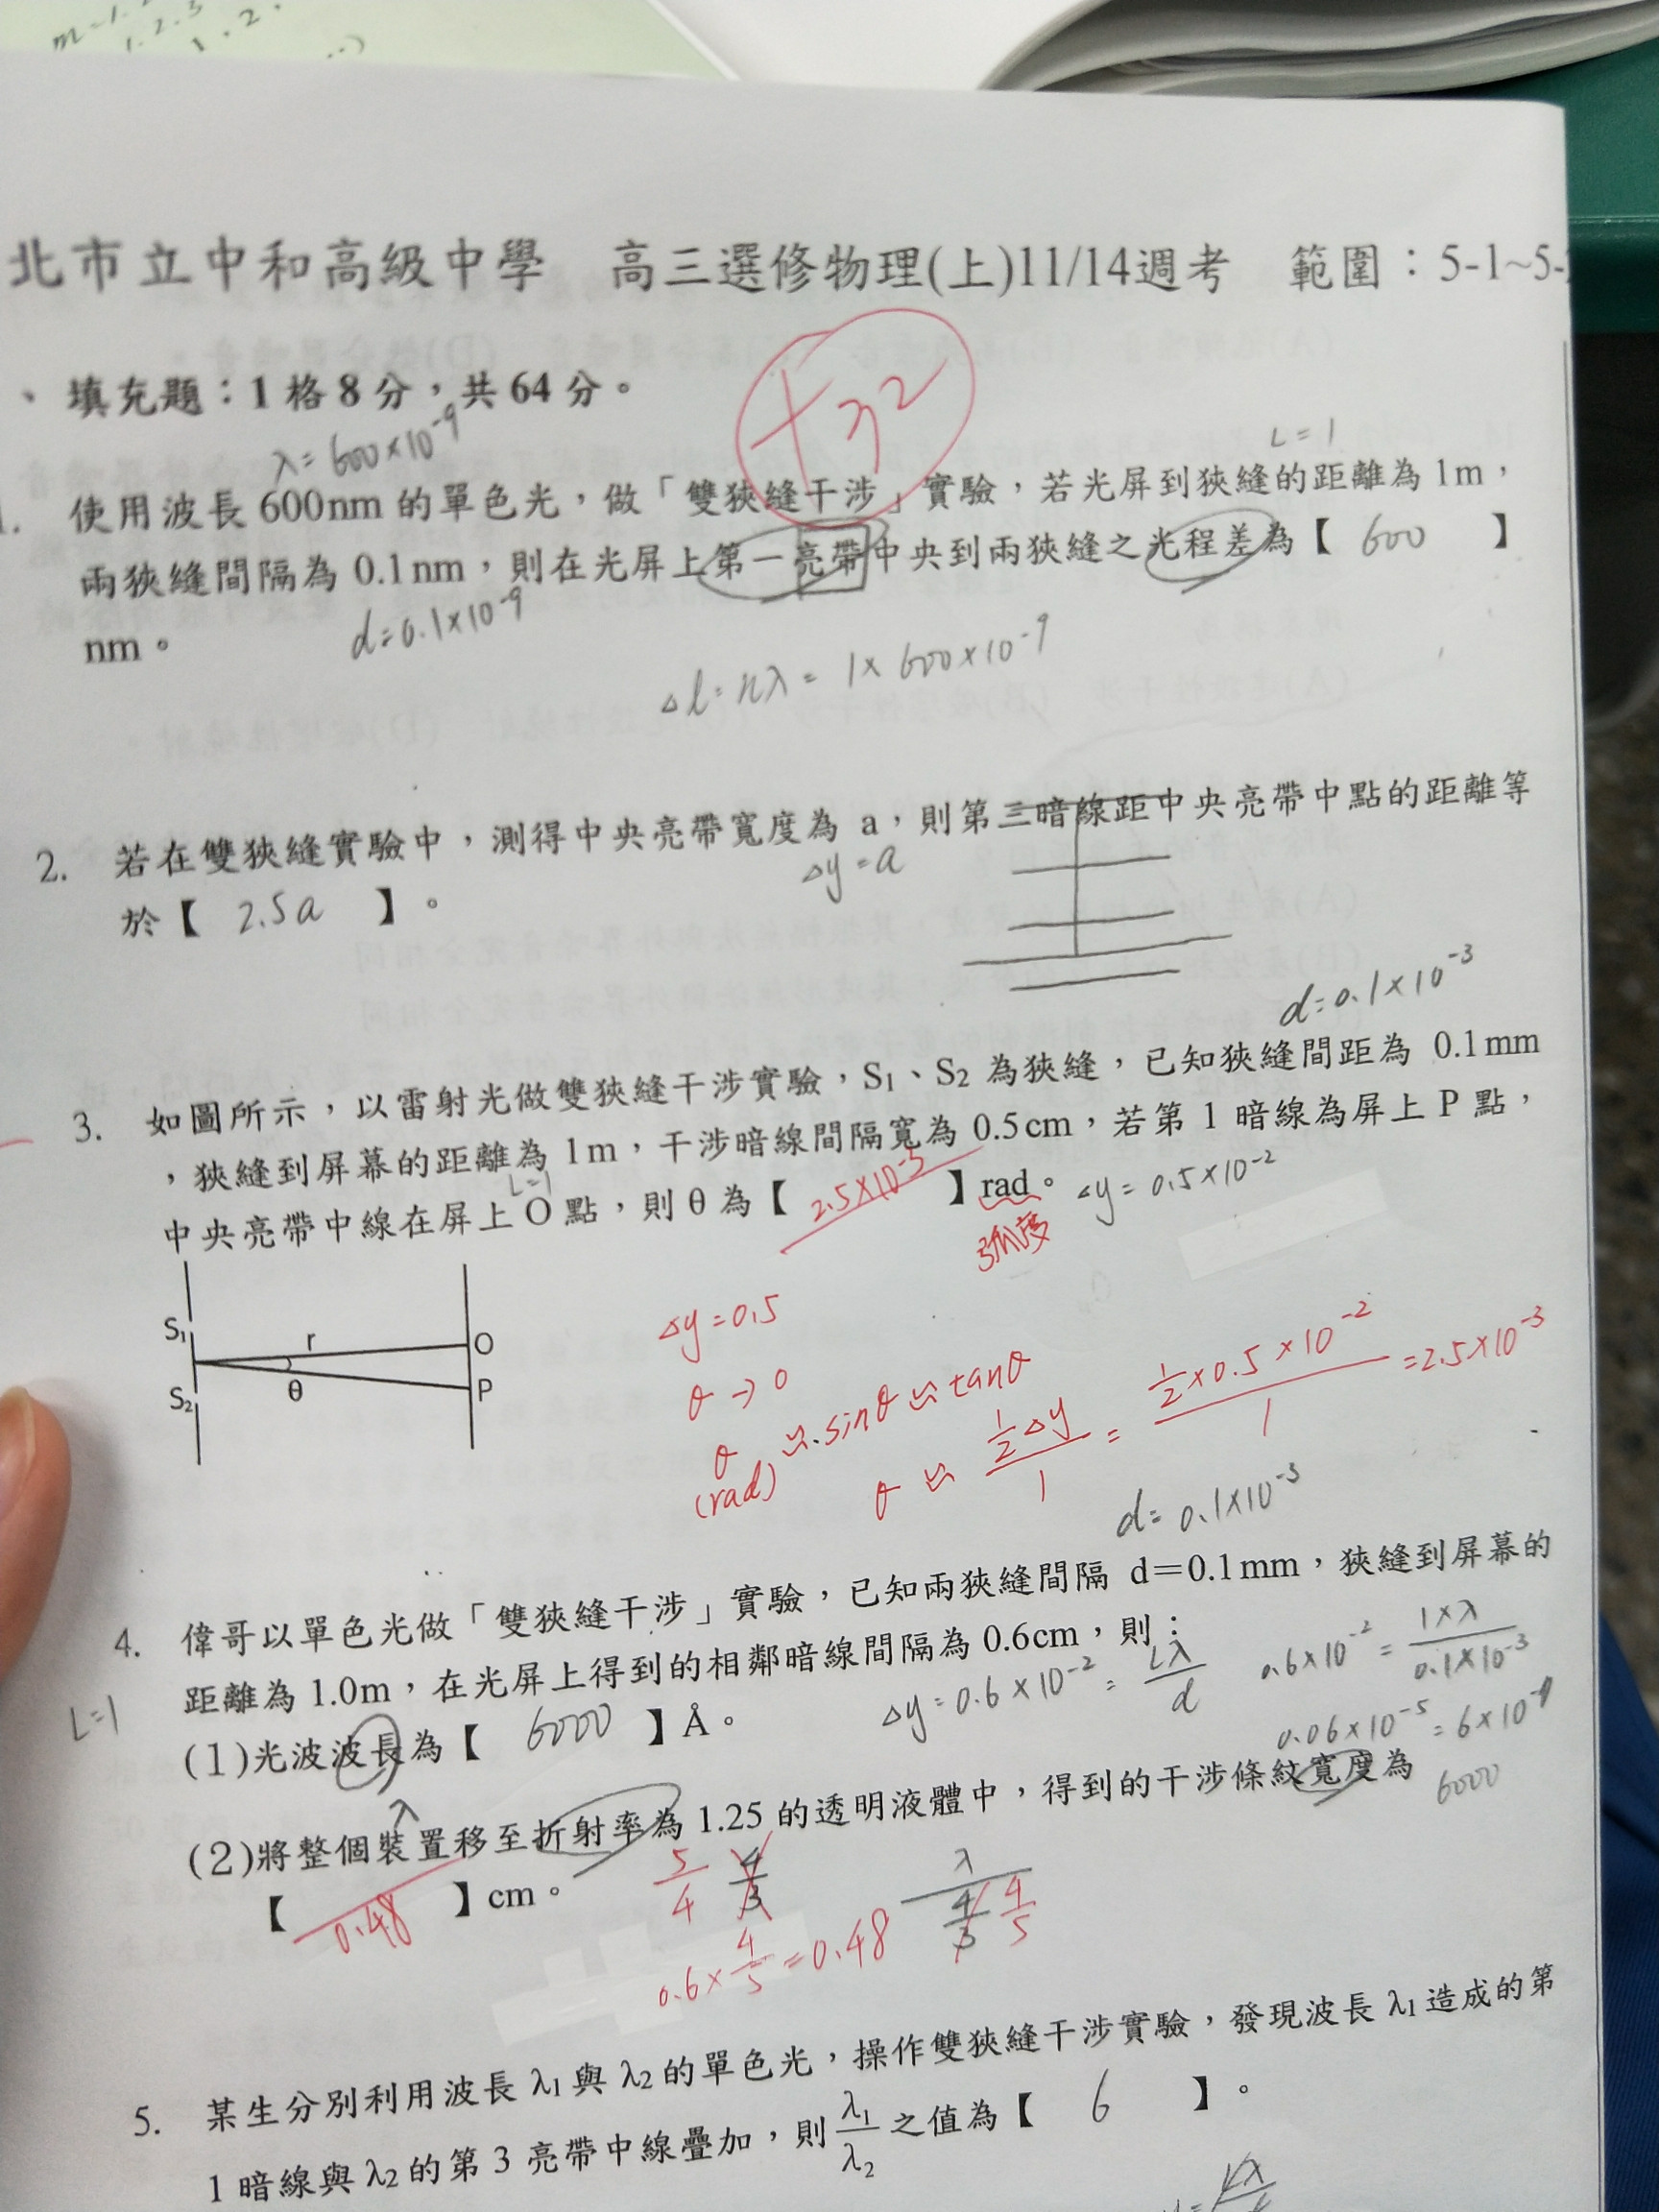 m=1.2
1.2.3
1.2.
北市立中和高級中學　高三選修物理(上)11/14週考　範圍：5-1~5-
、填充題：1 格 8 分，共 64 分。
+32
λ=600×10⁻⁹
L=1
1. 使用波長 600nm 的單色光，做「雙狹縫干涉」實驗，若光屏到狹縫的距離為 1m，
兩狹縫間隔為 0.1nm，則在光屏上第一亮帶中央到兩狹縫之光程差為【 600 】
nm。
d=0.1×10⁻⁹
Δl=nλ=1×600×10⁻⁹
2. 若在雙狹縫實驗中，測得中央亮帶寬度為 a，則第三暗線距中央亮帶中點的距離等
Δy=a
於【 2.5a 】。
d=0.1×10⁻³
3. 如圖所示，以雷射光做雙狹縫干涉實驗，S₁、S₂ 為狹縫，已知狹縫間距為 0.1mm
，狹縫到屏幕的距離為 1m，干涉暗線間隔寬為 0.5cm，若第 1 暗線為屏上 P 點，
L=1
中央亮帶中線在屏上 O 點，則 θ 為【 2.5×10⁻³ 】rad。 Δy=0.5×10⁻²
弧度
S₁ r O
S₂ θ P
Δy=0.5
θ→0
θ ≈ sinθ ≈ tanθ
(rad)
θ ≈ ½Δy/1 = ½×0.5×10⁻²/1 = 2.5×10⁻³
d=0.1×10⁻³
4. 偉哥以單色光做「雙狹縫干涉」實驗，已知兩狹縫間隔 d＝0.1mm，狹縫到屏幕的
距離為 1.0m，在光屏上得到的相鄰暗線間隔為 0.6cm，則：
L=1
Δy=0.6×10⁻²=Lλ/d
0.6×10⁻²=1×λ/0.1×10⁻³
(1)光波波長為【 6000 】Å。
0.06×10⁻⁵=6×10
λ
6000
(2)將整個裝置移至折射率為 1.25 的透明液體中，得到的干涉條紋寬度為
【 0.48 】cm。
5/4 4/3
λ
4/3 4/5
0.6×4/5=0.48
5. 某生分別利用波長 λ₁ 與 λ₂ 的單色光，操作雙狹縫干涉實驗，發現波長 λ₁ 造成的第
1 暗線與 λ₂ 的第 3 亮帶中線疊加，則 λ₁/λ₂ 之值為【 6 】。